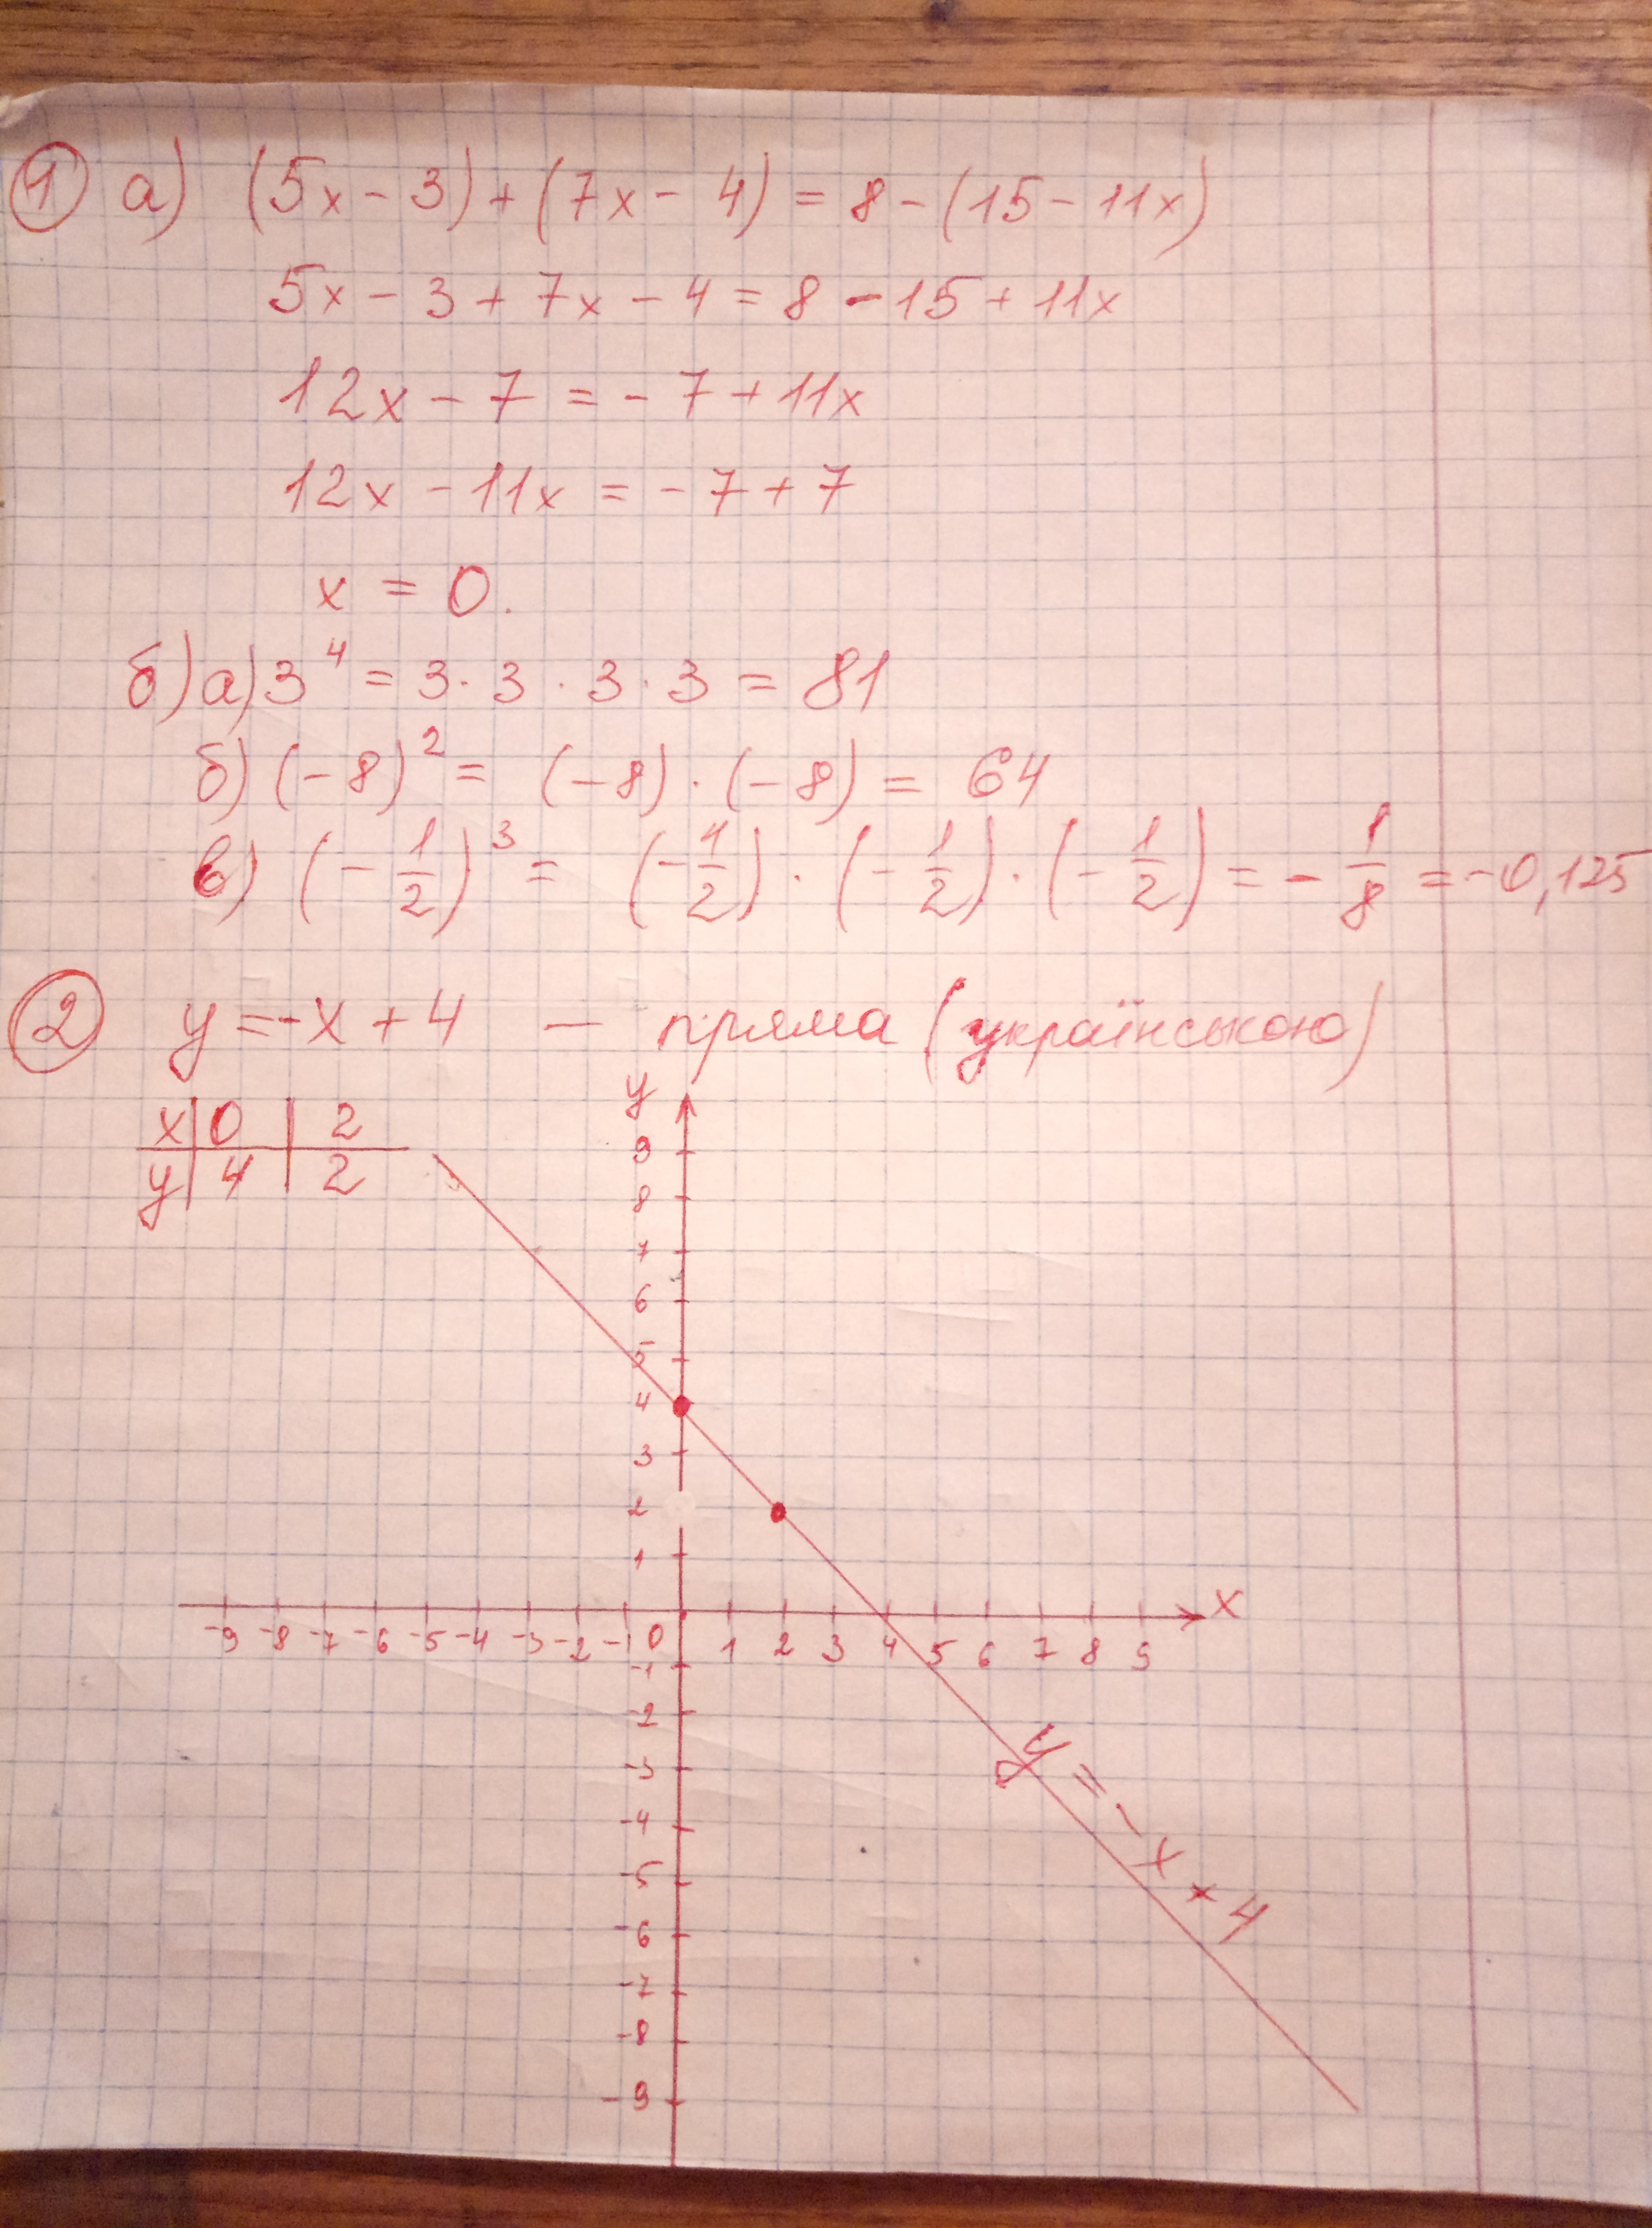 1 а) (5x - 3) + (7x - 4) = 8 - (15 - 11x)
5x - 3 + 7x - 4 = 8 - 15 + 11x
12x - 7 = - 7 + 11x
12x - 11x = - 7 + 7
x = 0.
б) а) 3⁴ = 3 · 3 · 3 · 3 = 81
б) (-8)² = (-8) · (-8) = 64
в) (-1/2)³ = (-1/2) · (-1/2) · (-1/2) = - 1/8 = -0,125
2 y = -x + 4 — пряма (українською)
x | 0 | 2
y | 4 | 2
y
9
8
7
6
5
4
3
2
1
x
-9 -8 -7 -6 -5 -4 -3 -2 -1 0 1 2 3 4 5 6 7 8 9
-1
-2
-3
-4
-5
-6
-7
-8
-9
y = -x + 4